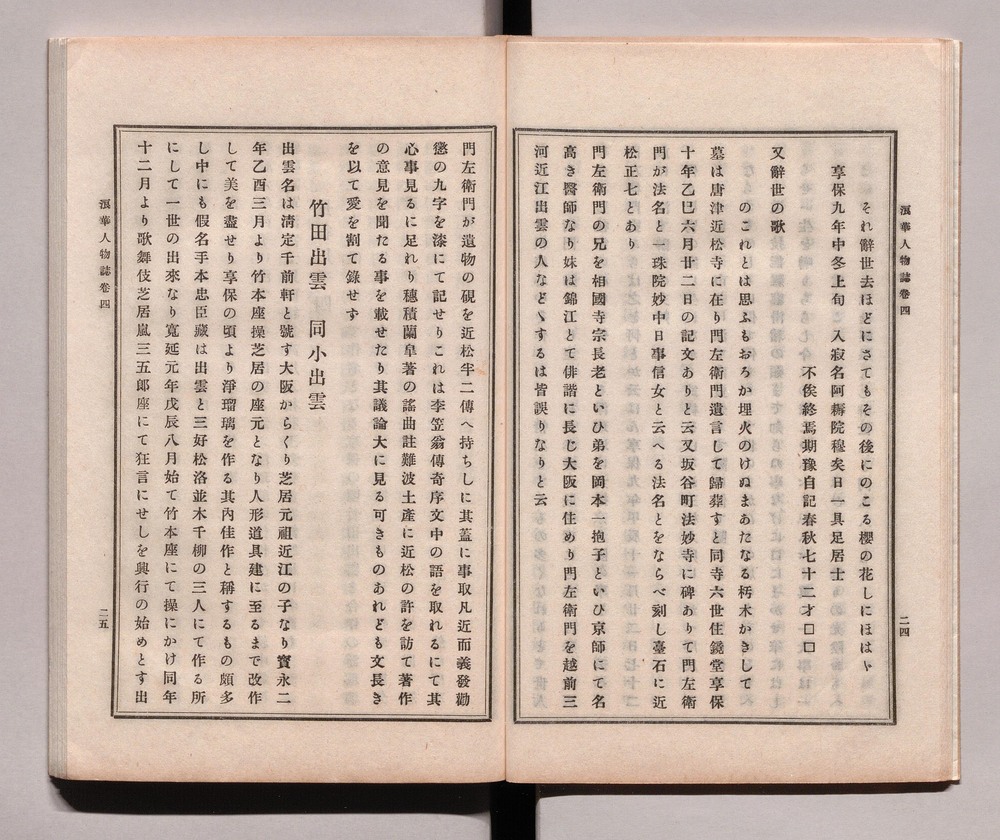 浪華人物誌卷四
二四
それ辭世去ほどにさてもその後にのこる櫻の花しにほはゞ
享保九年中冬上旬 入寂名阿耨院穆矣日一具足居士
不俟終焉期豫自記春秋七十二才□□
又辭世の歌
のこれとは思ふもおろか埋火のけぬまあたなる朽木かきして
墓は唐津近松寺に在り門左衛門遺言して歸葬すと同寺六世住鏡堂享保
十年乙巳六月廿二日の記文ありと云又坂谷町法妙寺に碑ありて門左衛
門が法名と一珠院妙中日事信女と云へる法名とをならべ刻し臺石に近
松正七とあり
門左衛門の兄を相國寺宗長老といひ弟を岡本一抱子といひ京師にて名
高き醫師なり妹は錦江とて俳諧に長じ大阪に住めり門左衛門を越前三
河近江出雲の人などゝするは皆誤りなりと云
門左衛門が遺物の硯を近松半二傳へ持ちしに其蓋に事取凡近而義發勸
懲の九字を漆にて記せりこれは李笠翁傳奇序文中の語を取れるにて其
心事見るに足れり穗積蘭皐著の謠曲註難波土產に近松の許を訪て著作
の意見を聞たる事を載せたり其議論大に見る可きものあれども文長き
を以て愛を割て錄せず
竹田出雲 同小出雲
出雲名は淸定千前軒と號す大阪からくり芝居元祖近江の子なり寶永二
年乙酉三月より竹本座操芝居の座元となり人形道具建に至るまで改作
して美を盡せり享保の頃より淨瑠璃を作る其內佳作と稱するもの頗多
し中にも假名手本忠臣藏は出雲と三好松洛並木千柳の三人にて作る所
にして一世の出來なり寬延元年戊辰八月始て竹本座にて操にかけ同年
十二月より歌舞伎芝居嵐三五郎座にて狂言にせしを興行の始めとす出
浪華人物誌卷四
二五